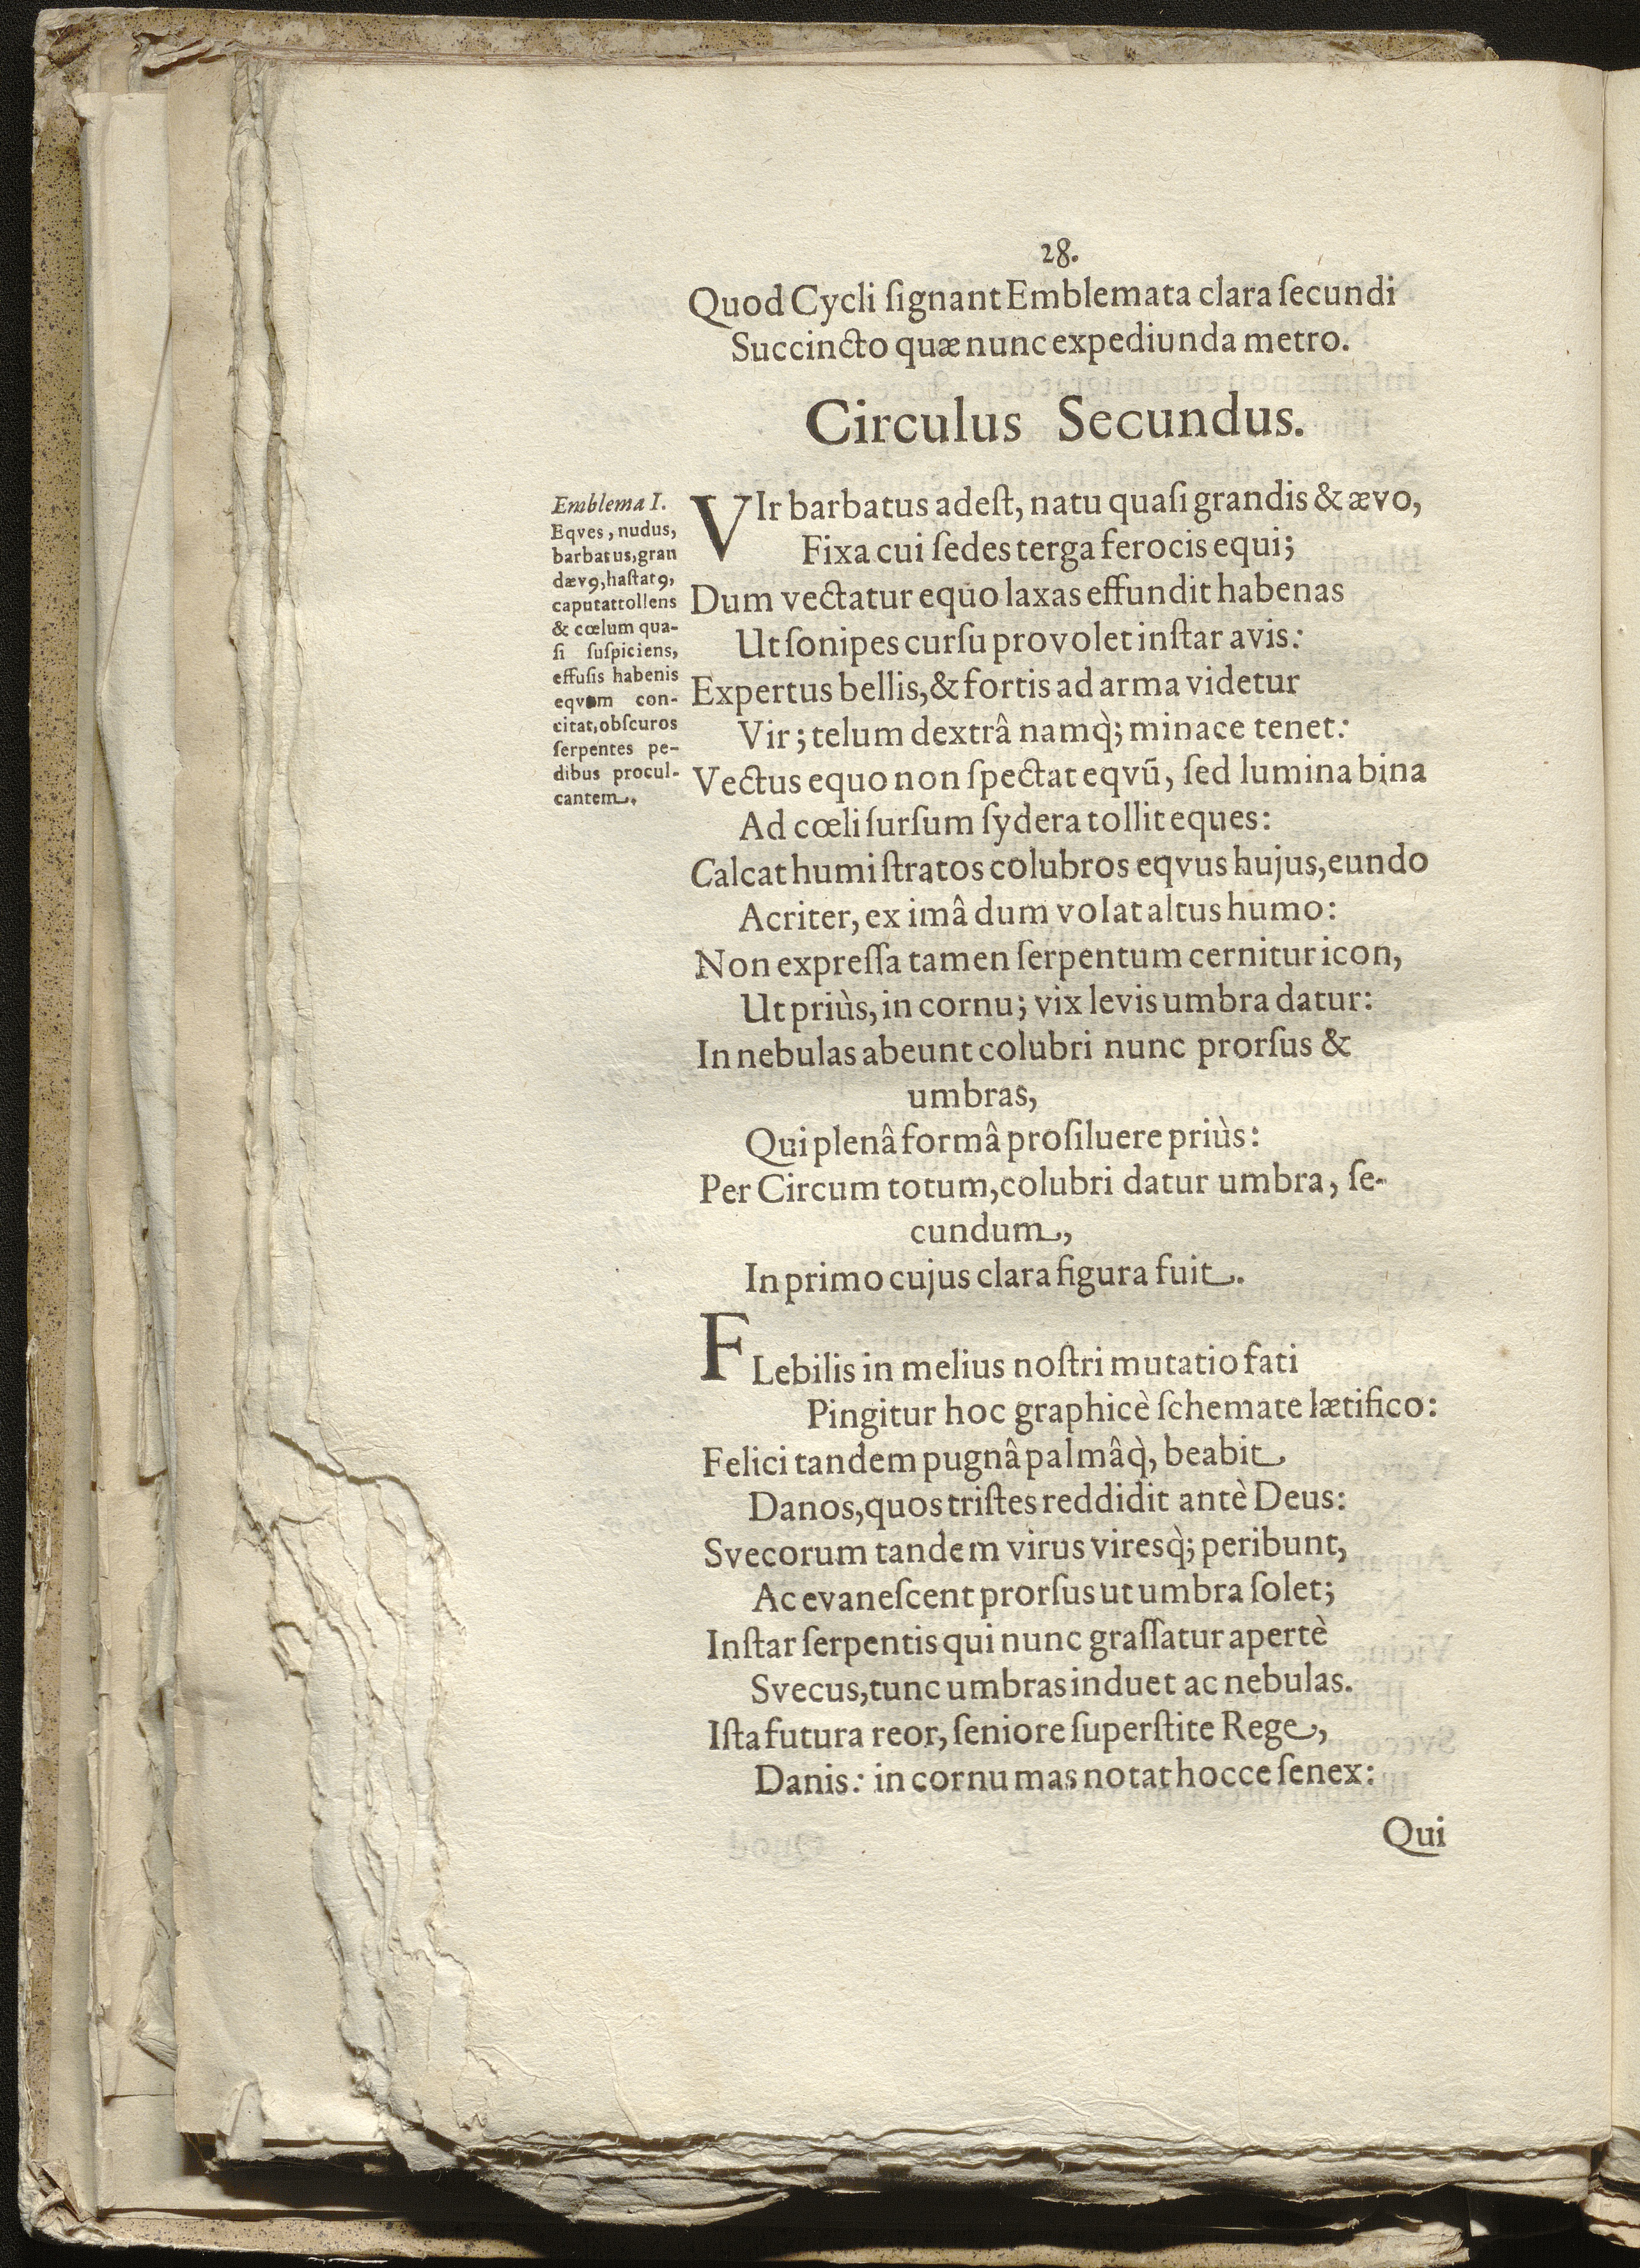 28.
Quod Cycli ſignant Emblemata clara ſecundi
Succincto quæ nunc expediunda metro.
Circulus Secundus.
Emblema I.
Eqves, nudus,
barbatus, gran
dævꝰ, haſtatꝰ,
caput attollens
& cœlum qua-
ſi ſuſpiciens,
effuſis habenis
eqvum con-
citat, obſcuros
ſerpentes pe-
dibus procul-
cantem.
VIr barbatus adeſt, natu quaſi grandis & ævo,
Fixa cui ſedes terga ferocis equi;
Dum vectatur equo laxas effundit habenas
Ut ſonipes curſu provolet inſtar avis:
Expertus bellis, & fortis ad arma videtur
Vir; telum dextrâ namq̀; minace tenet:
Vectus equo non ſpectat eqvū, ſed lumina bina
Ad cœli ſurſum ſydera tollit eques:
Calcat humi ſtratos colubros eqvus hujus, eundo
Acriter, ex imâ dum volat altus humo:
Non expreſſa tamen ſerpentum cernitur icon,
Ut priùs, in cornu; vix levis umbra datur:
In nebulas abeunt colubri nunc prorſus &
umbras,
Qui plenâ formâ proſiluere priùs:
Per Circum totum, colubri datur umbra, ſe-
cundum,
In primo cujus clara figura fuit.
FLebilis in melius noſtri mutatio fati
Pingitur hoc graphicè ſchemate lætifico:
Felici tandem pugnâ palmâq̀, beabit
Danos, quos triſtes reddidit antè Deus:
Svecorum tandem virus viresq̀; peribunt,
Ac evaneſcent prorſus ut umbra ſolet;
Inſtar ſerpentis qui nunc graſſatur apertè
Svecus, tunc umbras induet ac nebulas.
Iſta futura reor, ſeniore ſuperſtite Rege,
Danis: in cornu mas notat hocce ſenex:
Qui